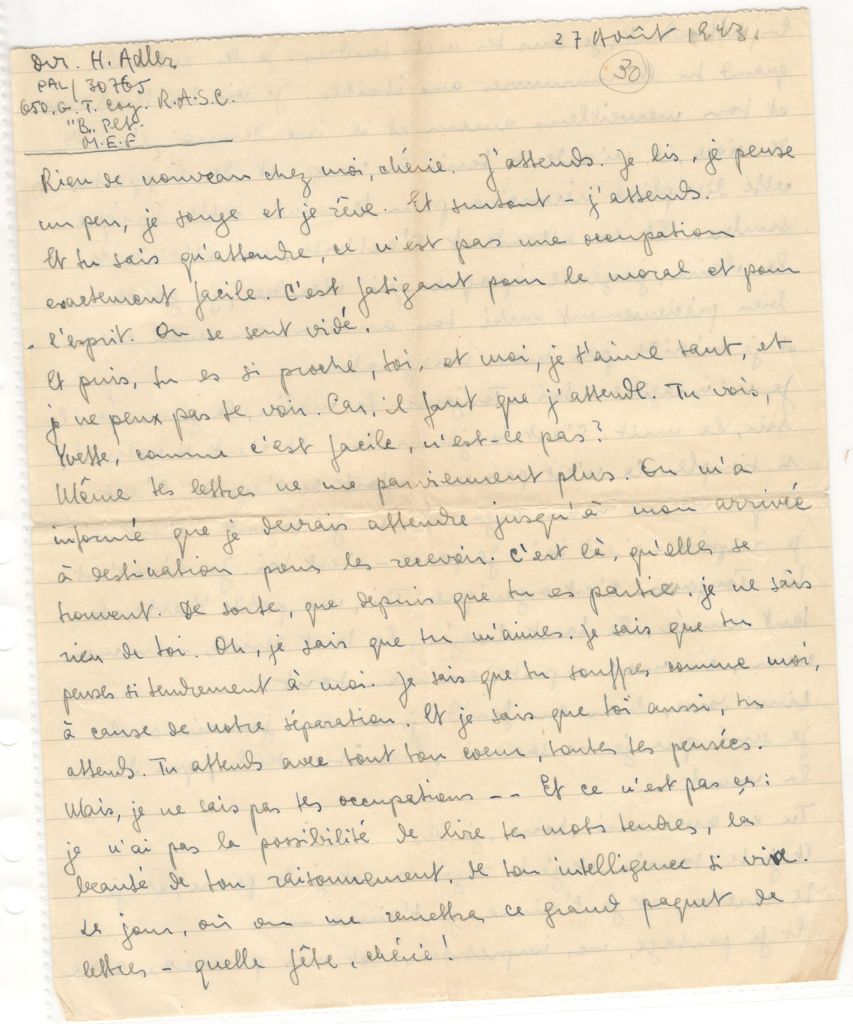 27 Août 1943.
30
Dvr. H. Adler
PAL/30765
650. G. T. Coy. R.A.S.C.
"B. Plt.
M.E.F
Rien de nouveau chez moi, chérie. J'attends. Je lis, je pense
un peu, je songe et je rêve. Et surtout - j'attends.
Et tu sais qu'attendre, ce n'est pas une occupation
exactement facile. C'est fatigant pour le moral et pour
l'esprit. On se sent vidé.
Et puis, tu es si proche, toi, et moi, je t'aime tant, et
je ne peux pas te voir. Car, il faut que j'attende. Tu vois,
Yvette, comme c'est facile, n'est-ce pas?
Même tes lettres ne me parviennent plus. On m'a
informé que je devrais attendre jusqu'à mon arrivée
à destination pour les recevoir. C'est là, qu'elles se
trouvent. De sorte, que depuis que tu es partie, je ne sais
rien de toi. Oh, je sais que tu m'aimes. Je sais que tu
penses si tendrement à moi. Je sais que tu souffres comme moi,
à cause de notre séparation. Et je sais que toi aussi, tu
attends. Tu attends avec tout ton coeur, toutes tes pensées.
Mais, je ne sais pas tes occupations -- Et ce n'est pas ça:
je n'ai pas la possibilité de lire tes mots tendres, la
beauté de ton raisonnement, de ton intelligence si vive.
Le jour, où on me remettra ce grand paquet de
lettres - quelle fête, chérie!